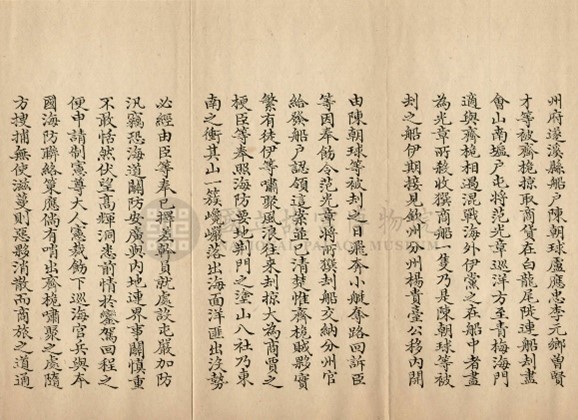 州府遂溪縣船戶陳朝球盧應忠李元鄉曾賢
才等被齊桅掠取商貨在白龍尾陡連船刦盡
會山南墟戶屯將范光章巡洋方至青梅海門
適與齊桅相遇混戰海外伊黨之在船中者盡
為光章所殺收獲商船一隻乃是陳朝球等被
刦之船伊期接見欽州分州楊貴臺公移內開
由陳朝球等被刦之日飛奔小艇奪路回訴臣
等因奉飭令范光章將所獲刦船交納分州官
給發船戶認領這案並已清楚惟齊桅賊夥實
繁有徒伊等嘯聚風浪往來刦掠大為商賈之
梗臣等奉照海防要地荆門之塗山八社乃東
南之衝其山一簇巉巗落出海面洋匪出沒勢
必經由臣等奉已撰差幹員就處設屯嚴加防
汛竊恐海道關防安廣與內地連界事關慎重
不敢恬然伏望高輝洞悉前情於鑾駕回程之
便申請制憲尊大人憲裁飭下巡海官兵與本
國海防聯絡策應倘有哨出齊桅嘯聚之處隨
方搜捕無使滋蔓則惡夥消散而商旅之道通
國立故宮博物院
NATIONAL PALACE MUSEUM